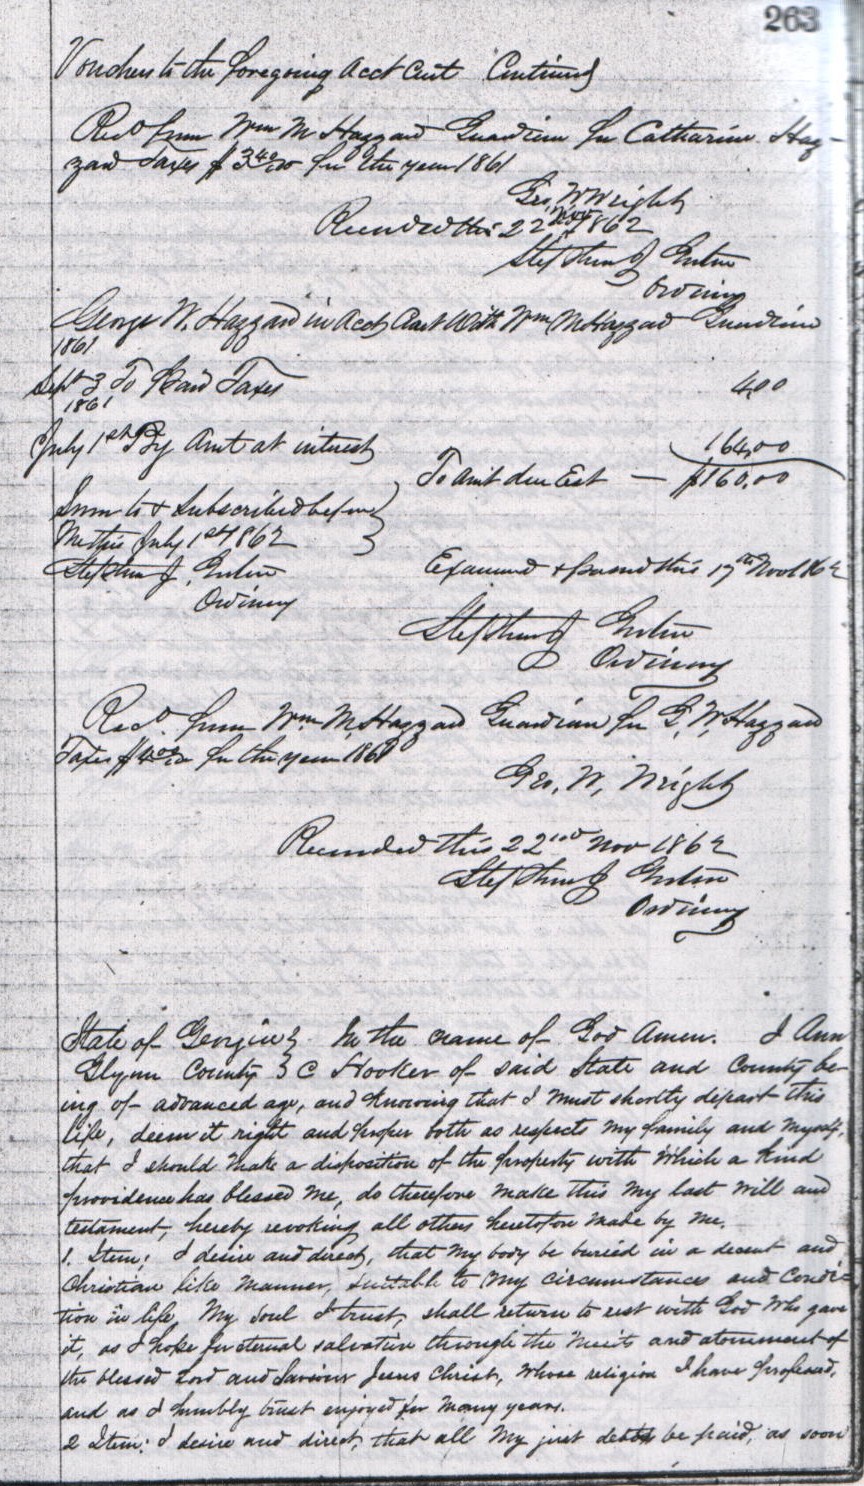 263
Vouchers to the foregoing Acct Curt Continued
Recd from Wm M Hazzard Guardian for Catharine Haz-
zard Taxes $3 40/100 for the year 1861
Geo, W Wright
Recorded this 22nd Nov 1862
Stephen J
Ordinary
George W. Hazzard in Acct Curt With Wm M Hazzard Guardian
1861
Sept 3 To Paid Taxes 4.00
1861
July 1st By Amt at interest 164.00
To Amt due Est — $160.00
Sworn to & Subscribed before
Me this July 1st 1862
Stephen J.
Ordinary
Examined & passed this 17th Nov 1862
Stephen J
Ordinary
Recd. from Wm. M Hazzard Guardian for G, W, Hazzard
Taxes $4 00/100 for the year 1861
Geo, W, Wright
Recorded this 22nd Nov 1862
Stephen J
Ordinary
State of Georgia } In the name of God Amen. I Ann
Glynn County } C Hooker of said State and County be-
ing of advanced age, and knowing that I must shortly depart this
life, deem it right and proper both as respects my family and myself,
that I should make a disposition of the property with which a kind
providence has blessed me, do therefore make this my last will and
testament, hereby revoking all others heretofore made by me.
1. Item; I desire and direct, that my body be buried in a decent and
Christian like manner, suitable to my circumstances and condi-
tion in life, My Soul I trust, shall return to rest with God who gave
it, as I hope for eternal salvation through the merits and atonement of
the blessed Lord and Saviour Jesus Christ, whose religion I have professed,
and as I humbly trust enjoyed for many years.
2 Item; I desire and direct, that all my just debts be paid, as soon